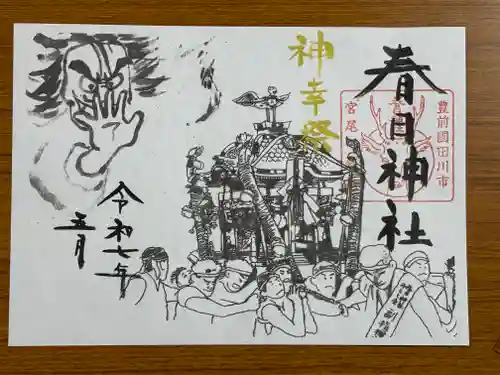 春日神社
豊前國田川市
宮尾
神幸祭
令和七年
五月